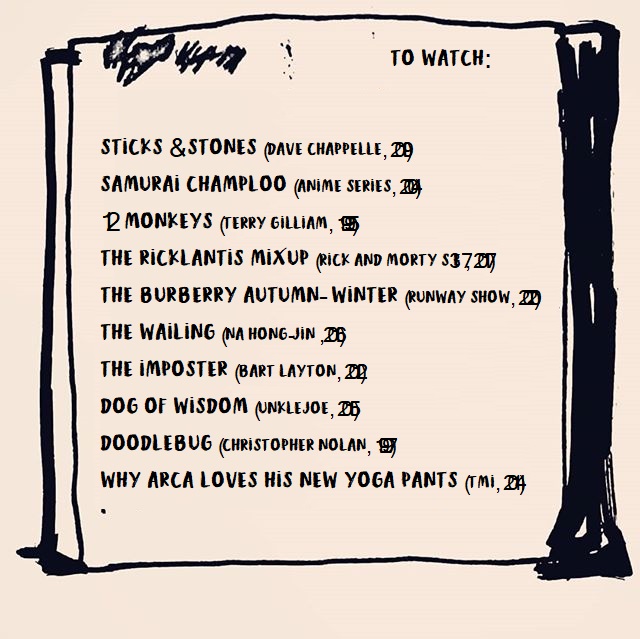 TO WATCH:
STICKS & STONES (DAVE CHAPPELLE,
SAMURAI CHAMPLOO (ANIME SERIES,
12 MONKEYS (TERRY GILLIAM,
THE RICKLANTIS MIXUP (RICK AND MORTY
THE BURBERRY AUTUMN-WINTER (RUNWAY SHOW,
THE WAILING (NA HONG-JIN,
THE IMPOSTER (BART LAYTON,
DOG OF WISDOM (UNKLEJOE,
DOODLEBUG (CHRISTOPHER NOLAN,
WHY ARCA LOVES HIS NEW YOGA PANTS (TMI,